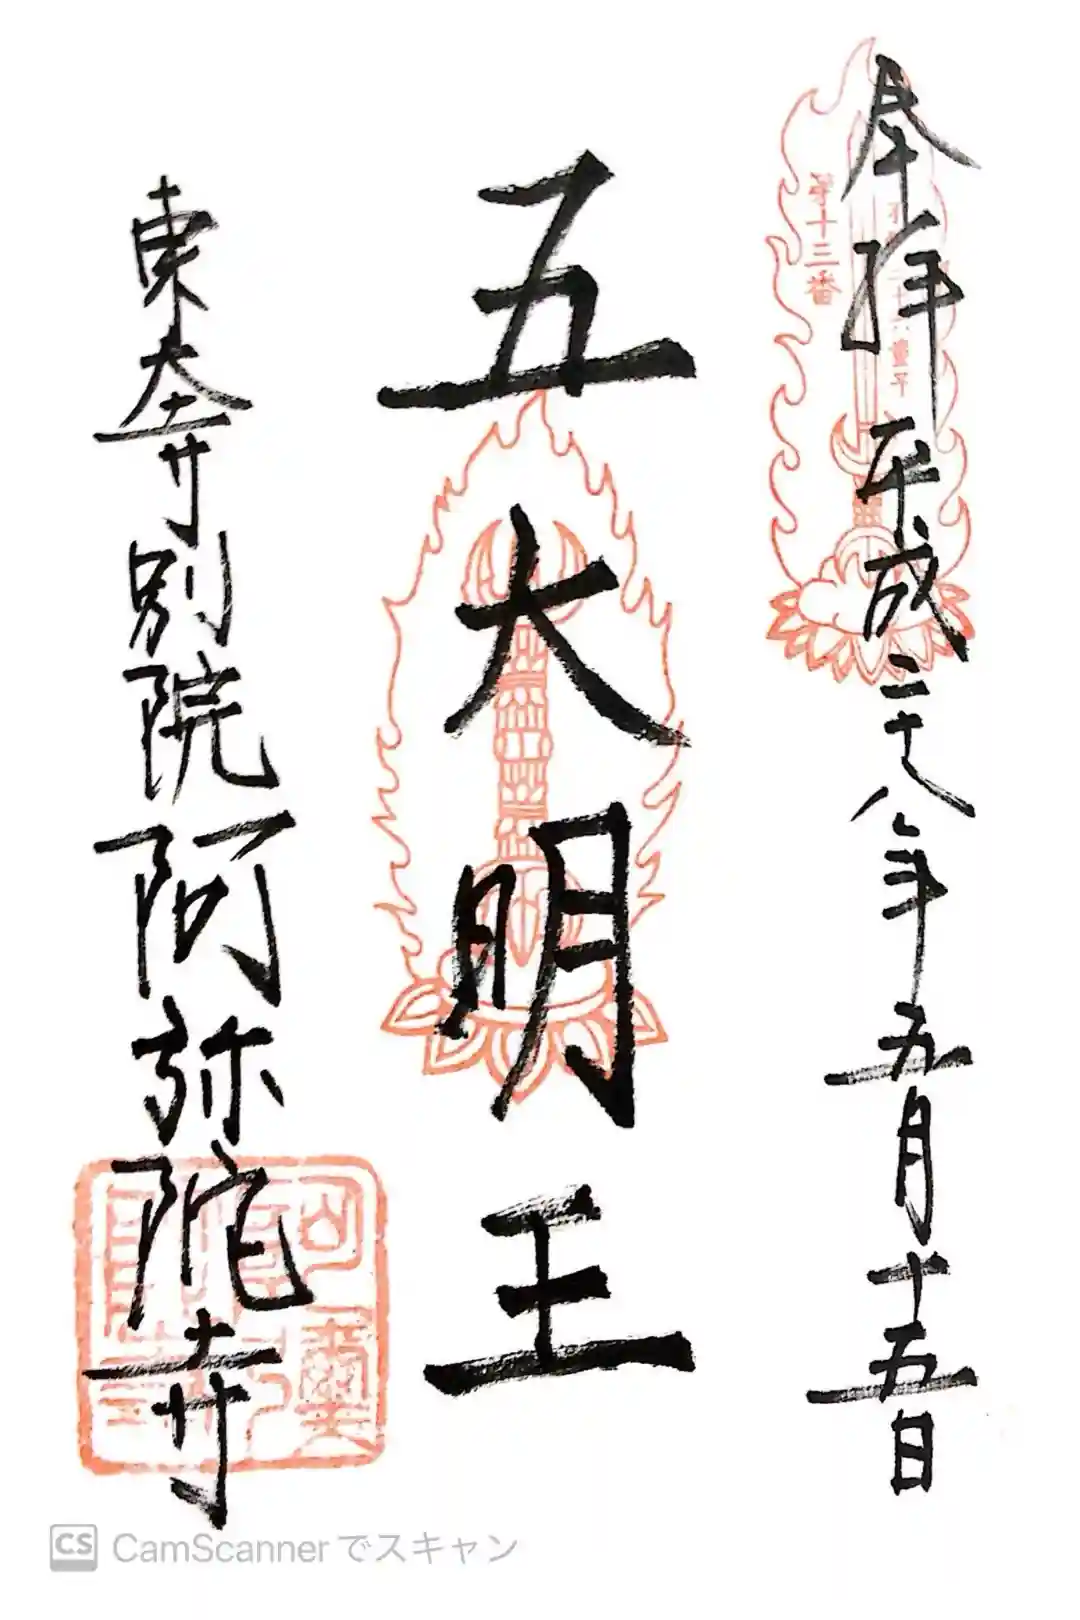 奉拝 平成二十八年五月十五日
第十三番
五大明王
東大寺別院阿弥陀寺
CS CamScannerでスキャン